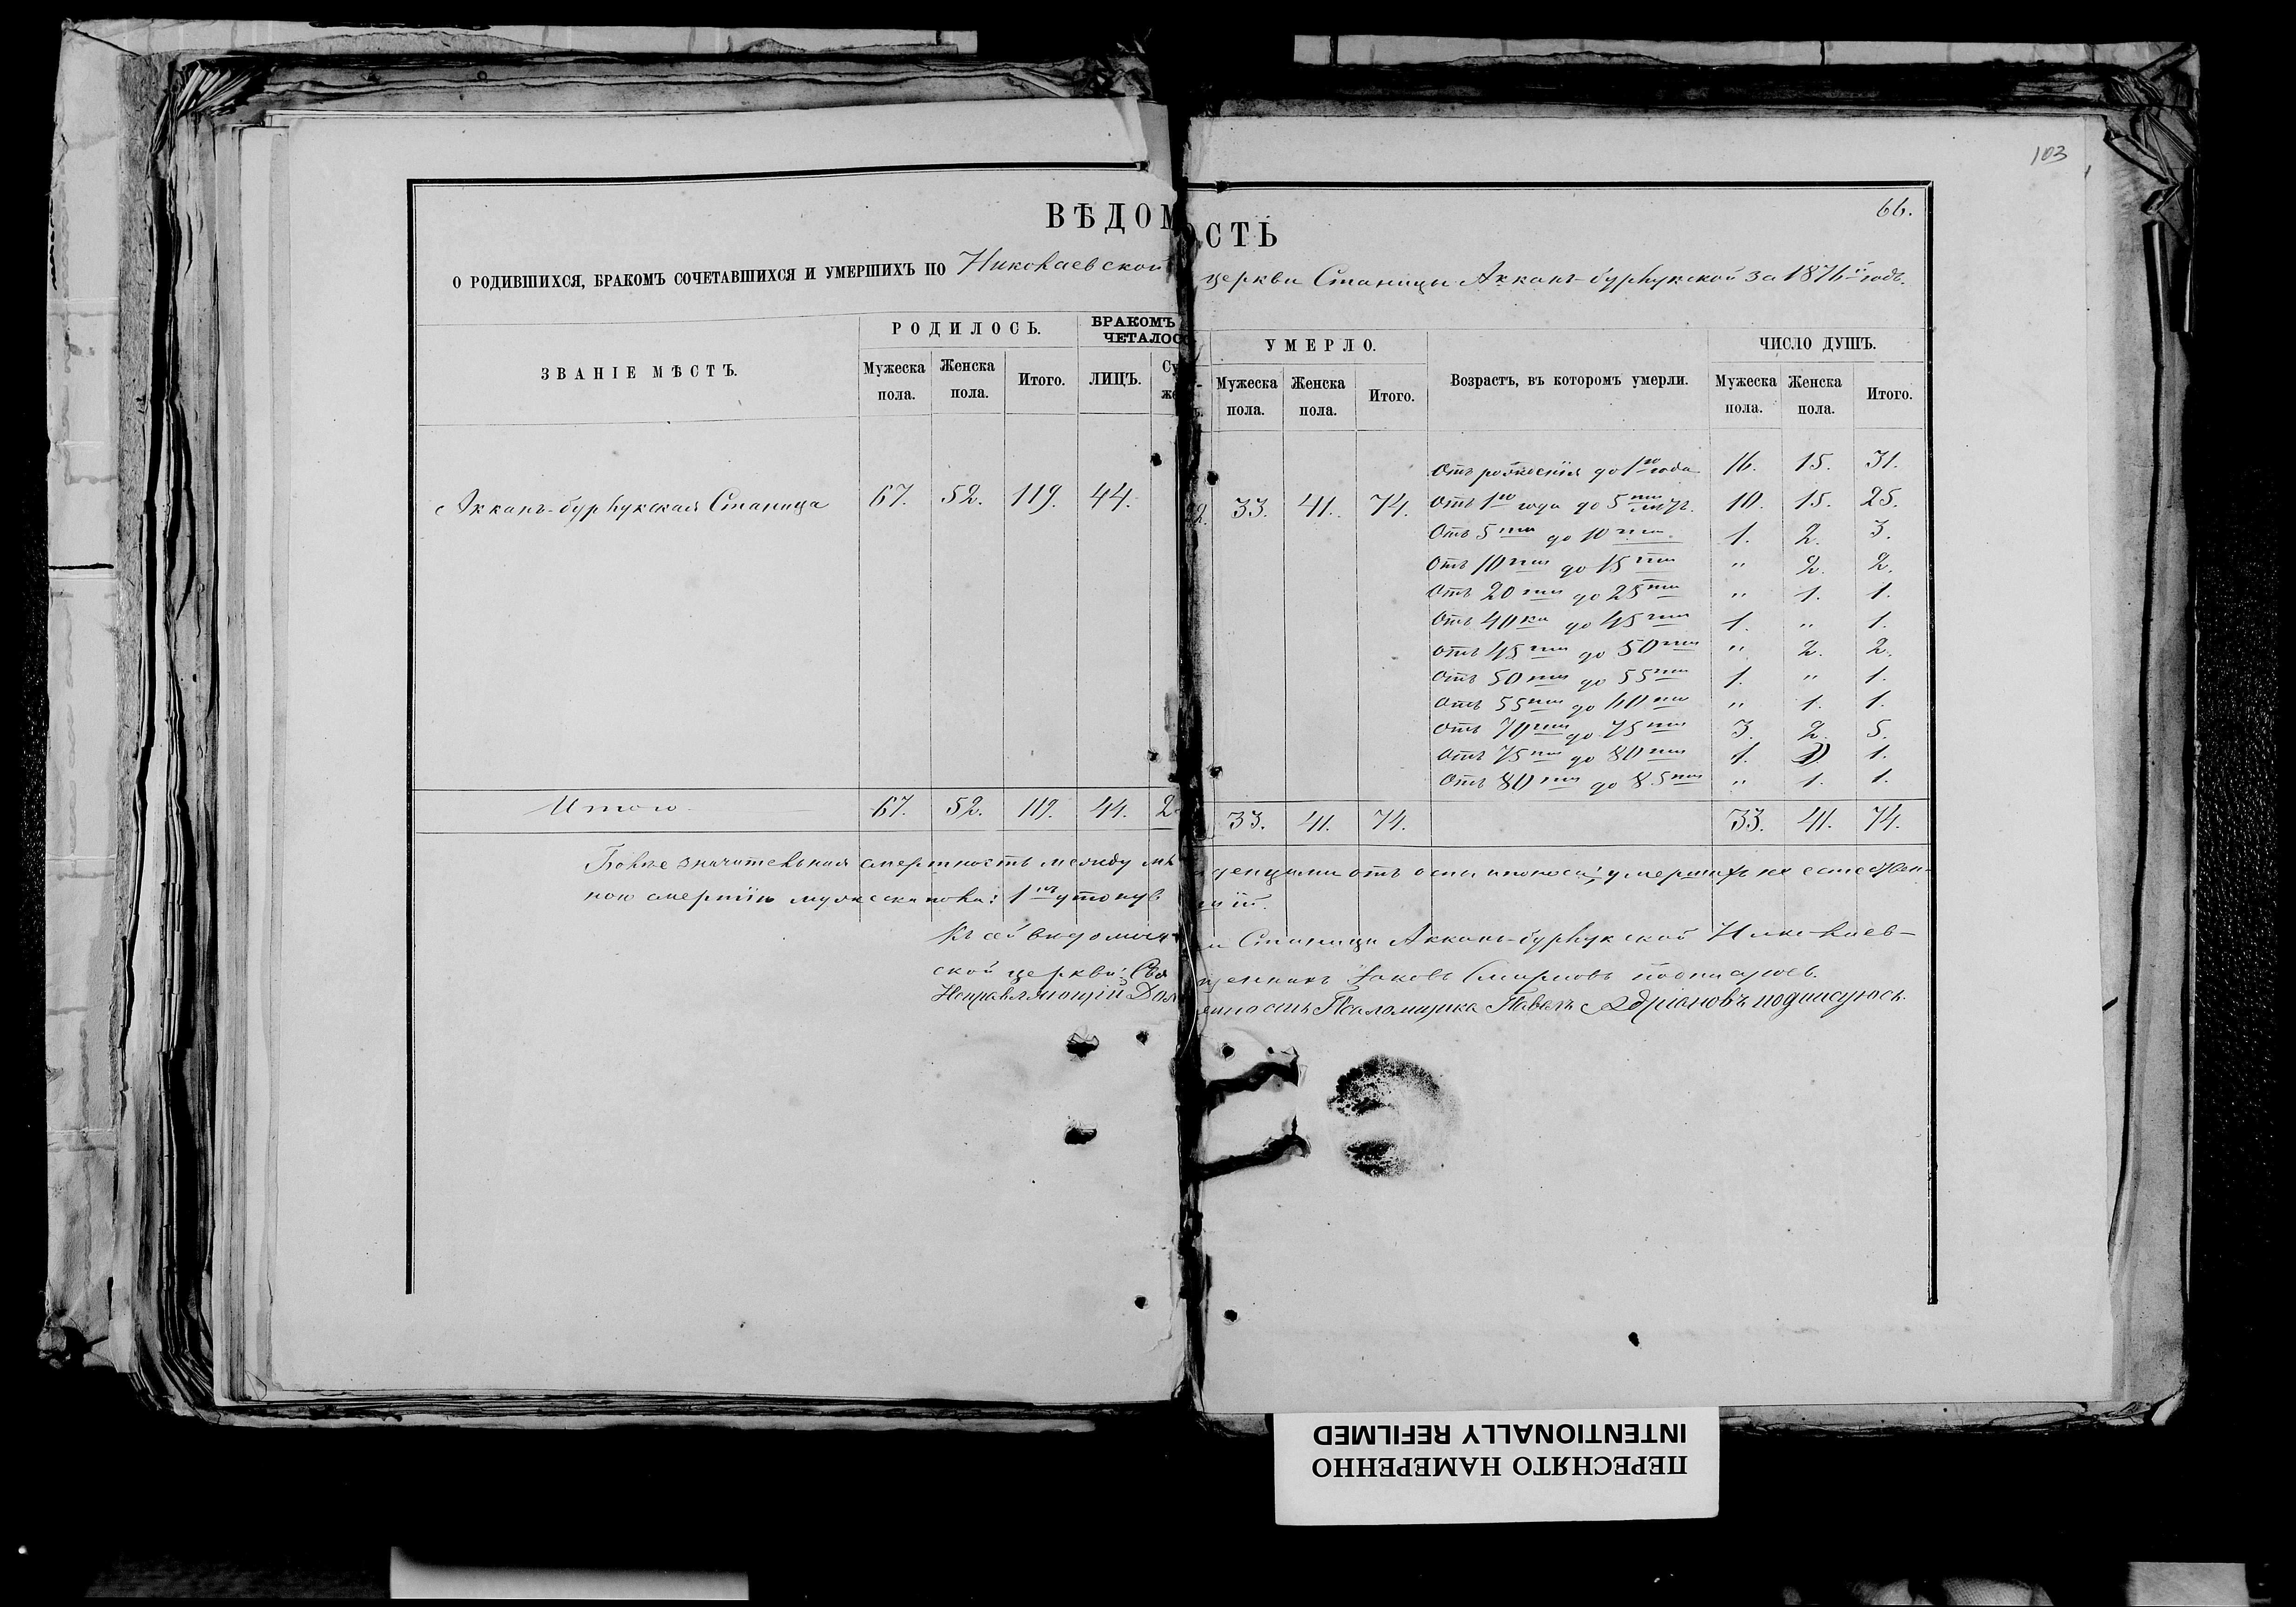 103
66.
ВѢДОМОСТЬ
О РОДИВШИХСЯ, БРАКОМЪ СОЧЕТАВШИХСЯ И УМЕРШИХЪ ПО Николаевской церкви Станицы Аккан-бурлукской за 1876й годъ.
ЗВАНІЕ МѢСТЪ. РОДИЛОСЬ. БРАКОМЪ ЧЕТАЛОС УМЕРЛО. Возрастъ, въ которомъ умерли. ЧИСЛО ДУШЪ.
Мужеска пола. Женска пола. Итого. ЛИЦЪ. Мужеска пола. Женска пола. Итого. Мужеска пола. Женска пола. Итого.
Отъ рожденія до 1го года 16. 15. 31.
Аккан-бурлукская Станица 67. 52. 119. 44. 22. 33. 41. 74. Отъ 1го года до 5ти летъ. 10. 15. 25.
Отъ 5ти до 10ти 1. 2. 3.
Отъ 10ти до 15ти " 2. 2.
Отъ 20ти до 25ти " 1. 1.
Отъ 40ка до 45ти 1. " 1.
Отъ 45ти до 50ти " 2. 2.
Отъ 50ти до 55ти 1. " 1.
Отъ 55ти до 60ти " 1. 1.
Отъ 70ти до 75ти 3. 2. 5.
Отъ 75ти до 80ти 1. 1.
Отъ 80ти до 85ти " 1. 1.
Итого 67. 52. 119. 44. 2 33. 41. 74. 33. 41. 74.
Более значительная смертность между младенцами отъ оспы и поноса; умершихъ не естествен-
ною смертію мужеска пола: 1нъ утонувшій.
Къ сей ведомости Станицы Аккан-бурлукской Николаев-
ской церкви: Священникъ Іаковъ Смирновъ подписуюсь.
Исправляющій Должность Псаломщика Павелъ Адріановъ подписуюсь.
ПЕРЕСНЯТО НАМЕРЕННО
INTENTIONALLY REFILMED